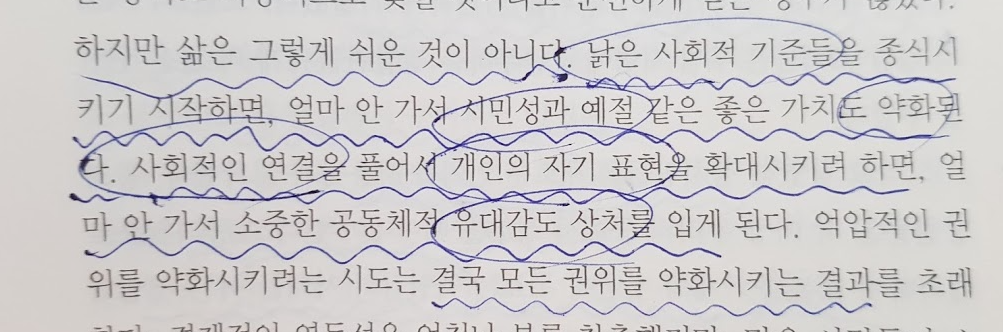 하지만 삶은 그렇게 쉬운 것이 아니다. 낡은 사회적 기준들을 종식시
키기 시작하면, 얼마 안 가서 시민성과 예절 같은 좋은 가치도 약화된
다. 사회적인 연결을 풀어서 개인의 자기 표현을 확대시키려 하면, 얼
마 안 가서 소중한 공동체적 유대감도 상처를 입게 된다. 억압적인 권
위를 약화시키려는 시도는 결국 모든 권위를 약화시키는 결과를 초래